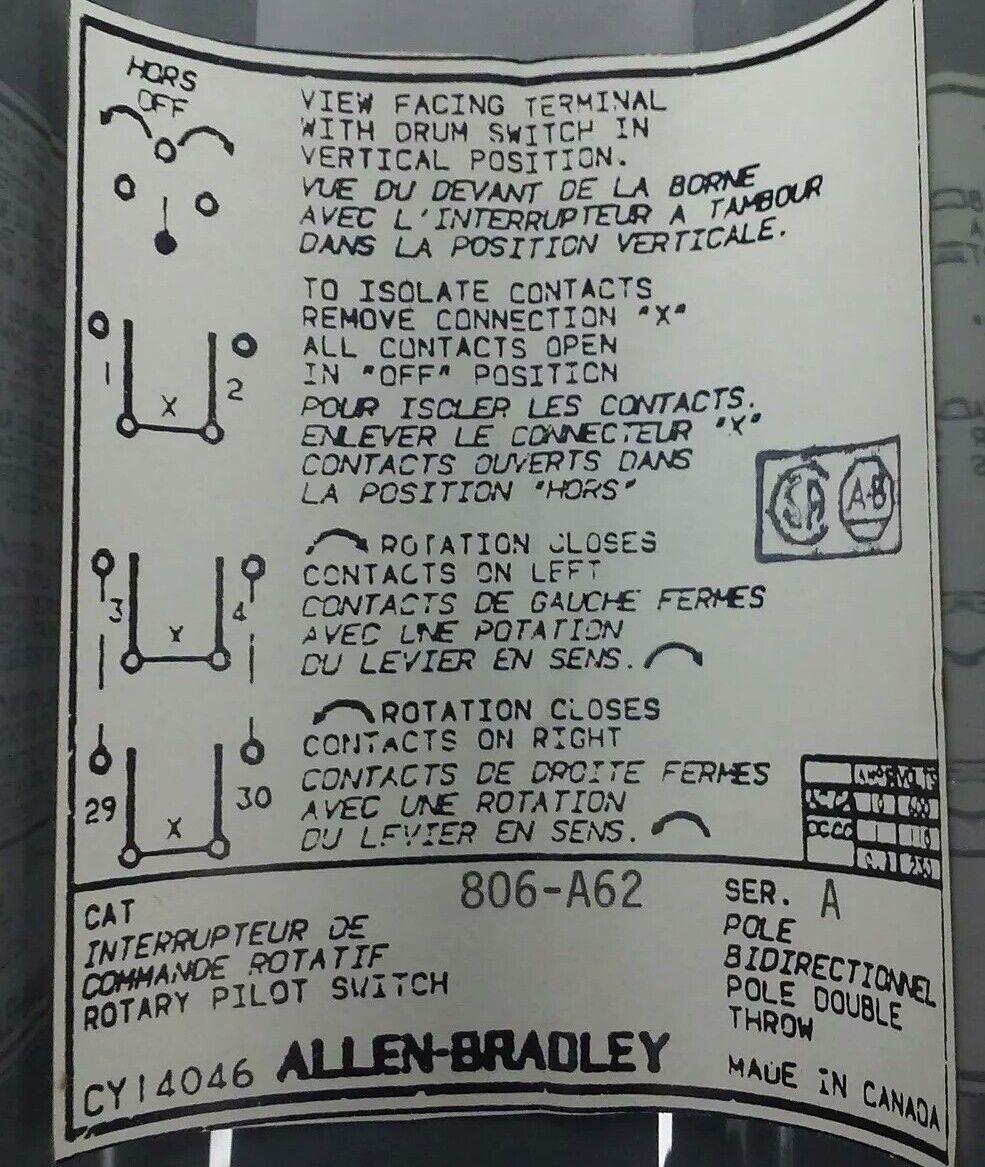 HORS
OFF
VIEW FACING TERMINAL
WITH DRUM SWITCH IN
VERTICAL POSITION.
VUE DU DEVANT DE LA BORNE
AVEC L'INTERRUPTEUR A TAMBOUR
DANS LA POSITION VERTICALE.
1 X 2
TO ISOLATE CONTACTS
REMOVE CONNECTION "X"
ALL CONTACTS OPEN
IN "OFF" POSITION
POUR ISOLER LES CONTACTS.
ENLEVER LE CONNECTEUR "X"
CONTACTS OUVERTS DANS
LA POSITION "HORS"
SA A-B
3 X 4
ROTATION CLOSES
CONTACTS ON LEFT
CONTACTS DE GAUCHE FERMES
AVEC UNE ROTATION
DU LEVIER EN SENS.
29 X 30
ROTATION CLOSES
CONTACTS ON RIGHT
CONTACTS DE DROITE FERMES
AVEC UNE ROTATION
DU LEVIER EN SENS.
10 600
1 115
CAT 806-A62 SER. A
INTERRUPTEUR DE
COMMANDE ROTATIF
ROTARY PILOT SWITCH
POLE
BIDIRECTIONNEL
POLE DOUBLE
THROW
CY14046 ALLEN-BRADLEY MADE IN CANADA